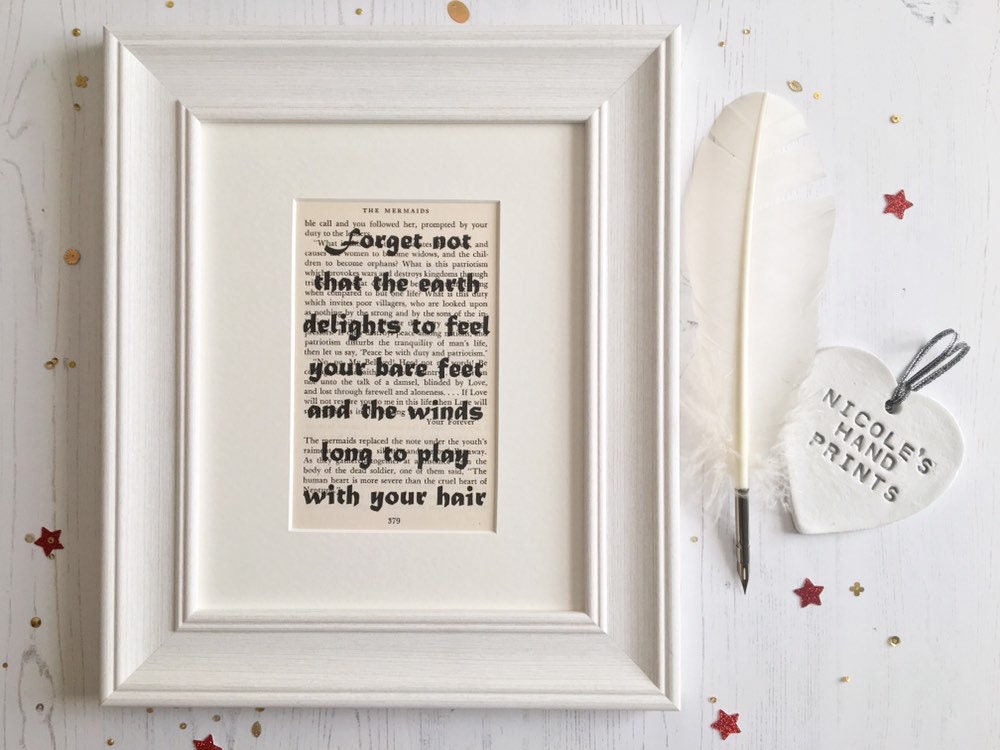 THE MERMAIDS
ble call and you followed her, prompted by your
duty to the
Forget not
"What and
causes women to become widows, and the chil-
dren to become orphans? What is this patriotism
which provokes wars and destroys kingdoms through
that the earth
when compared to but one life? What is this duty
which invites poor villagers, who are looked upon
as nothing by the strong and by the sons of the in-
delights to feel
patriotism disturbs the tranquility of man's life,
then let us say, 'Peace be with duty and patriotism.'
your bare feet
not unto the talk of a damsel, blinded by Love,
and lost through farewell and aloneness. . . . If Love
will not restore you to me in this life then Love will
and the winds
Your Forever
The mermaids replaced the note under the youth's
long to play
body of the dead soldier, one of them said, "The
human heart is more severe than the cruel heart of
with your hair
379
NICOLE'S
HAND
PRINTS